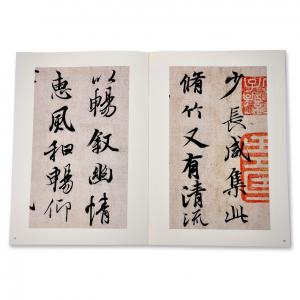 少長咸集此
脩竹又有清流
以暢叙幽情
惠風和暢仰